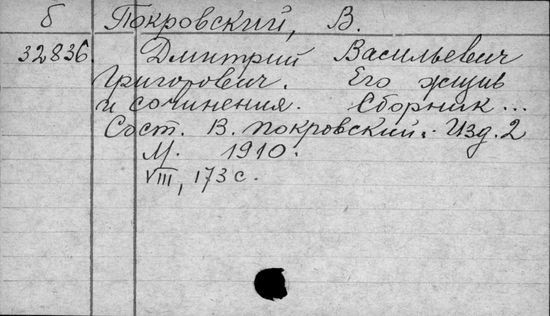 б Покровский, В.
32836 Дмитрий Васильевич
Григорович. Его жизнь
и сочинения. Сборник ...
Сост. В. Покровский. Изд. 2
М. 1910.
VIII, 173 с.